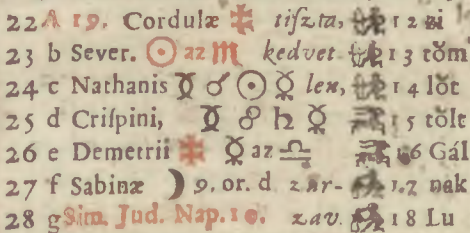 22 A 19. Cordulæ tiſzta, 12 zi
23 b Sever. ☉ az ♏ kedvet 13 tŏm
24 c Nathanis ☿ ☌ ☉ ☿ len, 14 lŏt
25 d Criſpini, ☿ ☍ ♄ ☿ 15 tŏlt
26 e Demetrii ☿ az ♎ 16 Gál
27 f Sabinæ ☽ 9. or. d. zur- 17 nak
28 g Sim. Jud. Nap. 10. zav. 18 Lu